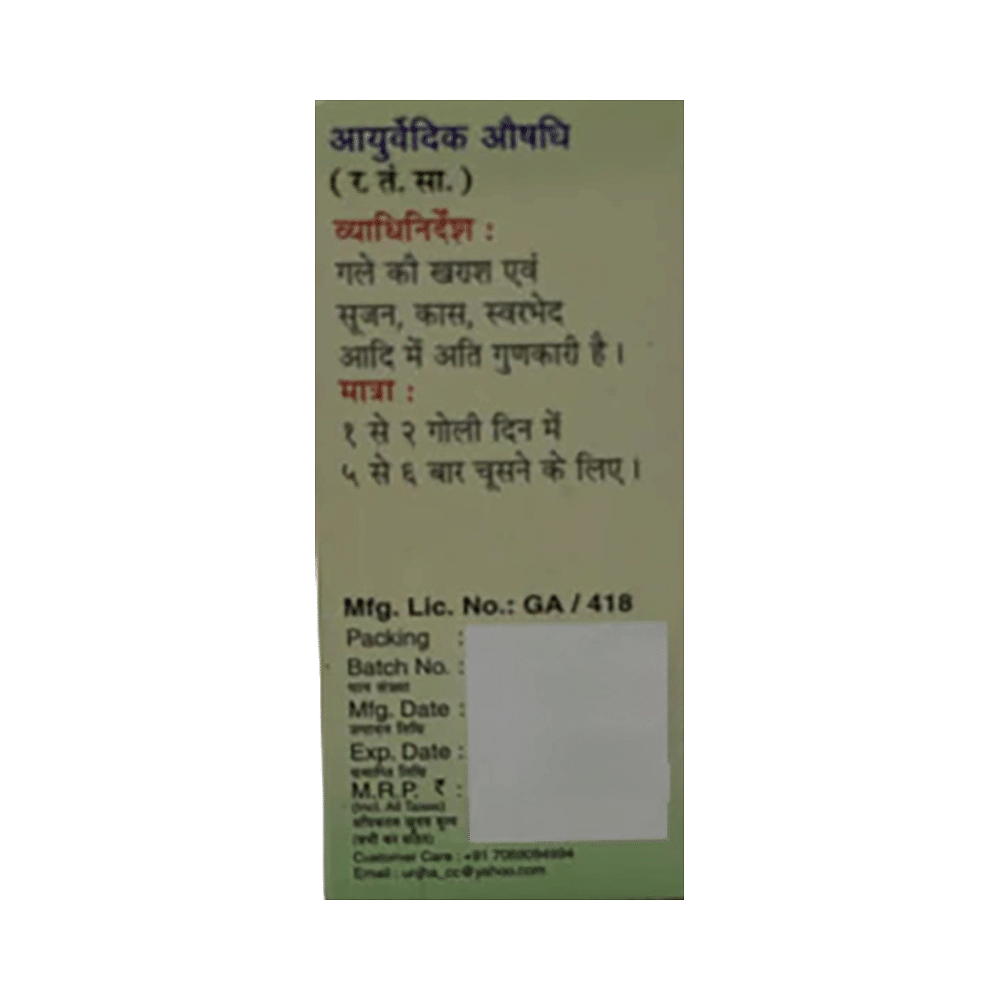 आयुर्वेदिक औषधि
( र. तं. सा. )
व्याधिनिर्देश :
गले की खराश एवं
सूजन, कास, स्वरभेद
आदि में अति गुणकारी है।
मात्रा :
१ से २ गोली दिन में
५ से ६ बार चूसने के लिए।
Mfg. Lic. No.: GA / 418
Packing :
Batch No. :
Mfg. Date :
उत्पादन तिथि
Exp. Date :
समाप्ति तिथि
M.R.P. ₹ :
(Incl. All Taxes)
अधिकतम खुदरा मूल्य
(सभी कर सहित)
Customer Care : +91
Email : unjha_cc@yahoo.com